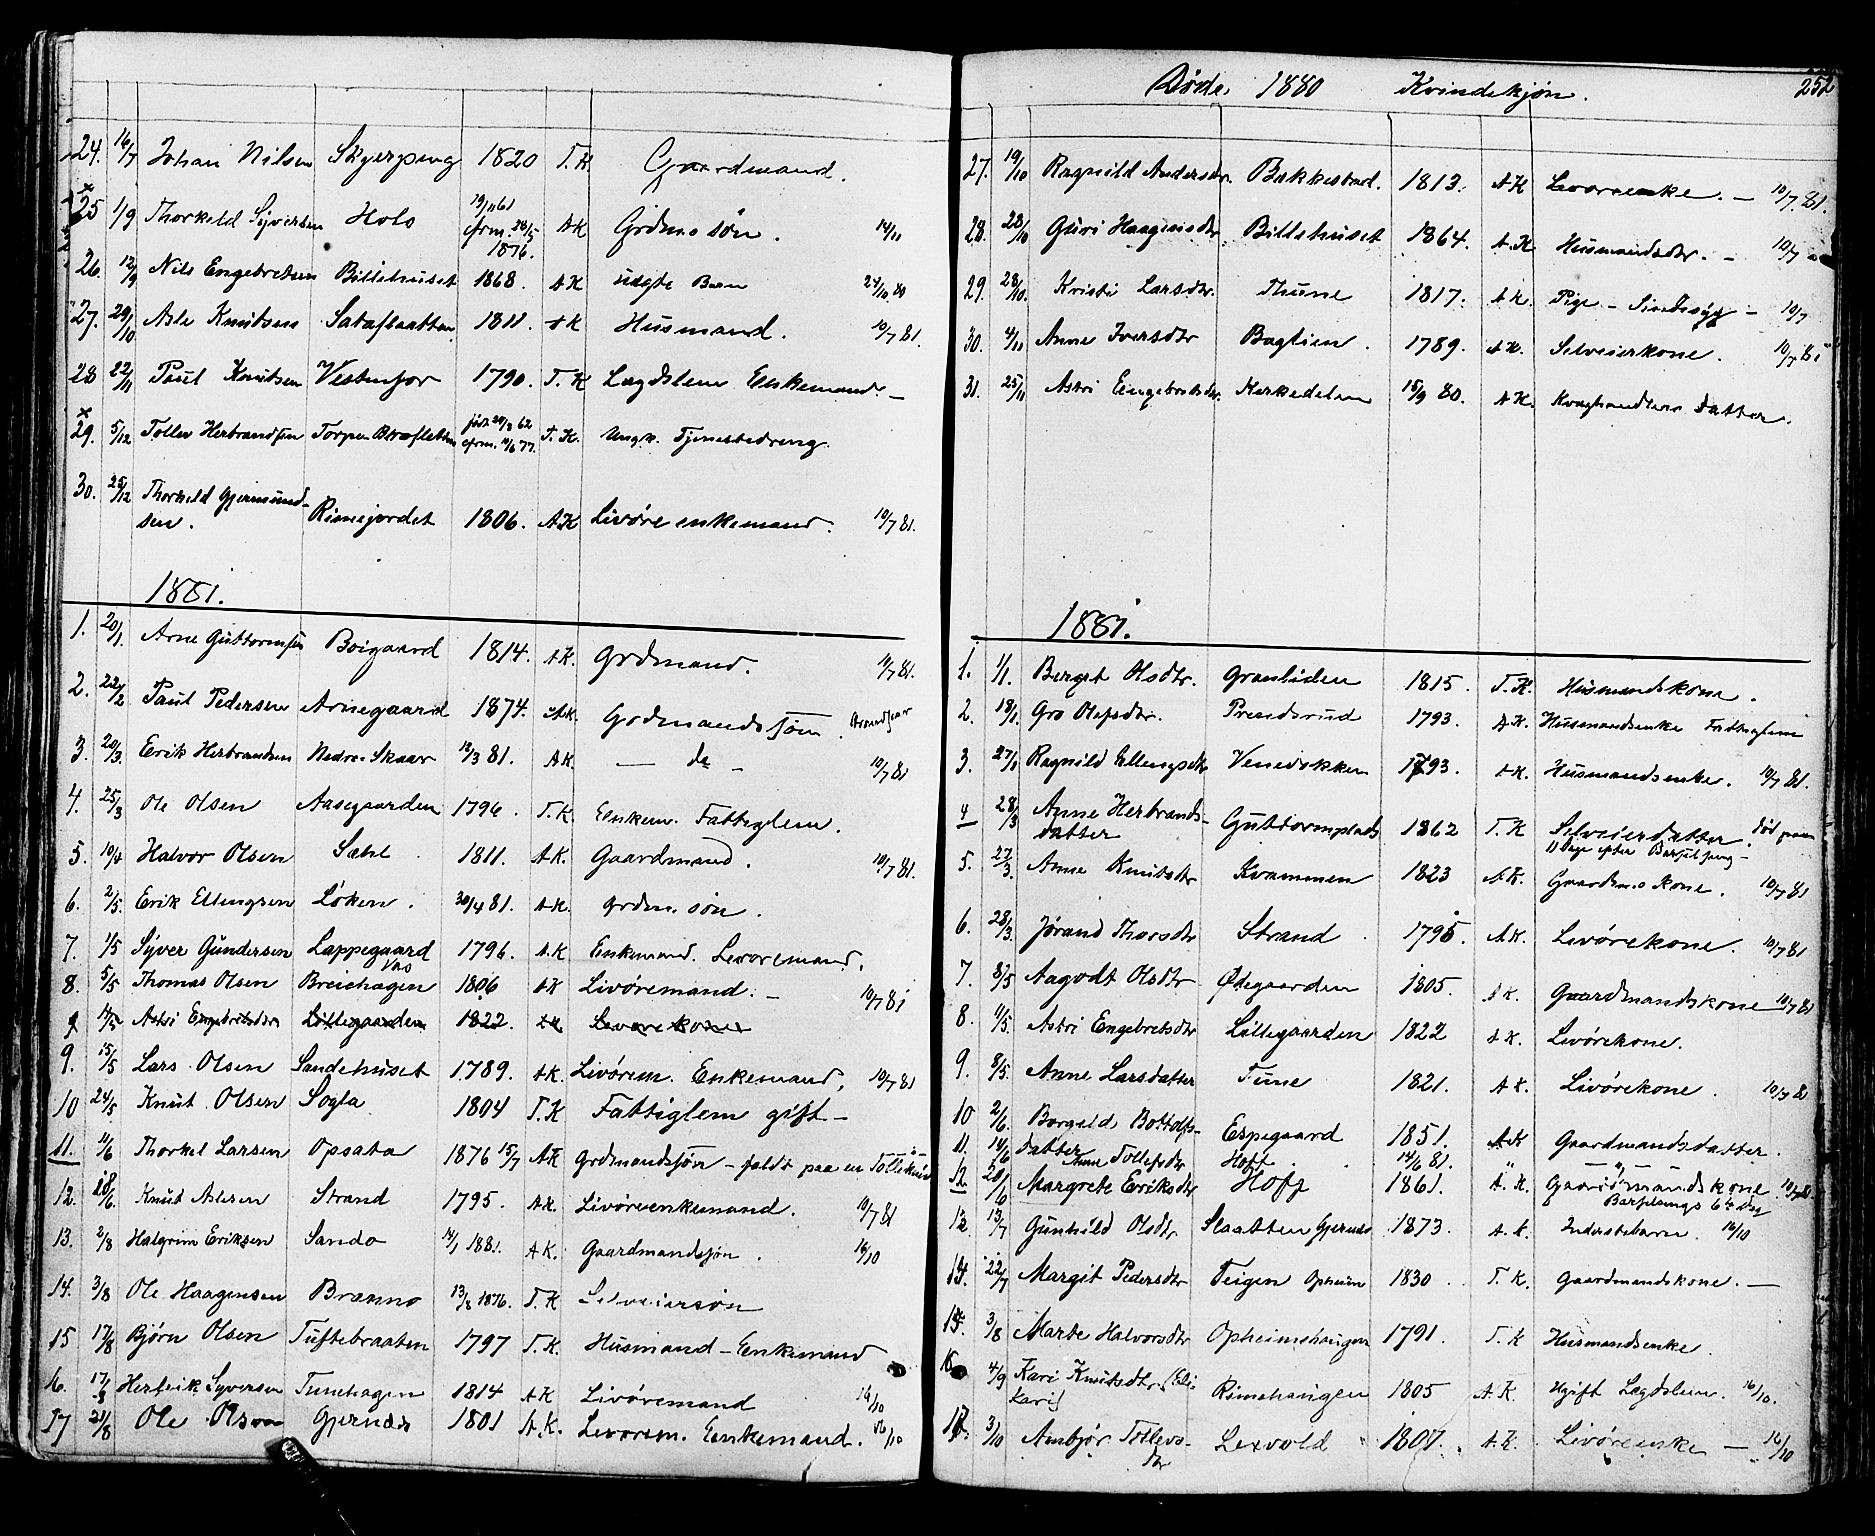 24. 16/7 Johan Nilsen Skjerping 1820 T.K. Gaardmand.
25 1/9 Thorkeld Syversen Holo 19/11 61 Grdms søn.
cfrm. 1876. AK
26. 12/9 Nils Engebretsen Billehuset 1868. AK uægte Barn 24/10 80
27. 29/10 Asle Knutsen Sataslaatten 1811. AK Husmand. 10/7 81.
28 22/11 Paul Knutsen 1790. T.K Lægdslem Enkemand. —
29. 5/12 Tollev Herbrandsen Torpe T.K. Ungk. Tjenestedreng.
30. 25/12 Thorkeld Gjermund-
sen. Rimejordet 1806. A.K Livøre enkemand. 10/7 81.
1881.
1. 20/1. Arne Guttormsen Boigaard 1814. A.K. Grdmand. 10/7 81.
2. 22/2 Paul Pedersen Arnegaard 1874. A.K. Grdmandssøn.
3. 20/3. Erik Herbrandsen Nedre-Skaar 12/3 81. AK. — do — 10/7 81
4. 25/3 Ole Olsen Aasegaarden 1796. T.K. Enkem. Fattiglem.
5. 10/4 Halvor Olsen Sæhl 1811. A.K. Gaardmand. 10/7 81.
6. 2/5. Erik Ellingsen Løken. 30/4 81. A.K. grdm. søn.
7. 1/5 Syver Gundersen Lappegaard 1796. A.K Enkemand. Levoremand.
8. 5/5 Thomas Olsen Breiehagen 1806 AK Livøremand. — 10/7 81
9 11/5 Astri Engebretsdtr Lillegaarden 1822. AK Levorekone
9. 15/5 Lars Olsen Sandehuset 1789. AK. Livørem. Enkemand. 10/7 81
10 24/5 Knut Olsen Sogla 1804 T.K Fattiglem gift. —
11. 11/6 Thorkel Larsen Opsata 1876 15/7 A.K Grdmandssøn — faldt paa en Tollekniv
12. 18/6. Knut Aslesen Strand 1795. A.K. Livøreenkemand. 10/7 81
13. 2/8 Halgrim Eriksen Sando 14/1 1881. A.K. Gaardmandssøn. 16/10
14. 3/8 Ole Haagensen Brænno 13/8 1876. T.K Selveiersøn
15 17/8 Bjørn Olsen Tuftebraaten 1797 T.K. Husmand — Enkemand
16. 17/8 Herbrik Syversen Tunehagen 1814 A.K Livøremand 16/10
17 21/8 Ole Olsen Gjernæs 1801 A.K. Levorem. Enkemand. 16/10
Døde. 1880 Kvindekjøn. 252
27. 19/10 Ragnild Andersdtr. Bakkestad. 1813. AK Levoreenke. — 10/7 81.
28. 28/10 Guri Haagensdtr Billehuset 1864. A.K Husmandsdtr. — 10/7
29. 28/10. Kristi Larsdtr. Thune 1817. A.K. Pige — Sindssyg — 10/7
30. 4/11 Anne Iversdtr Baglien. 1789. A.K. Selveierkone. 10/7 81
31. 25/11 Astri Engebretsdtr. Kirkedelen 15/9 80. A.K. Kvæghandlers datter.
1881.
1. 1/1. Berget Olsdtr. Granliden 1815. T.K. Husmandskone.
2. 18/1. Gro Olefsdtr. 1793. A.K. Husmandsenke Fattiglem
3. 27/1 Ragnild Ellingsdtr 1793. A.K. Husmandsenke. 10/7 81.
4 28/3 Anne Herbrands-
datter Guttormsplads 1862 T.K Selveierdatter. død paa
11 Dage efter Barselseng —
5. 27/3. Anne Knutsdtr Kvammen 1823 A.K. Gaardm.s kone. 10/7 81
6. 28/3. Jørand Thorsdtr Strand. 1795. A.K. Livørekone. 10/7 81
7. 8/5 Aagodt Olsdtr Ødegaarden 1805. A.K. Gaardmandskone 10/7 81
8. 11/5. Astri Engebretsdtr Lillegaarden 1822 A.K. Livørekone.
9. 8/5. Anne Larsdatter Tune 1821. A.K. Livørekone. 10/7 8
10 2/6. Borgild Bottolfs-
datter Espegaard 1851. A.K Gaardmandsdatter.
11. 14/6 Anne Tollefsdtr Hoff. 14/6 81. — " —
12. 20/6 Margrete Eriksdtr Hoff 1861. A.K. Gaardmandskone.
Barselsengs 6te Dag
12. 13/7 Gunhild Olsdtr Slaatten Gjernæs 1873. A.K. Inderstebarn. 16/10
14. 22/7 Margit Pedersdtr Teigen Opheim 1830. T.K. Gaardmandskone. —
15. 3/8 Marte Halvorsdtr Opheimshaugen 1791. T.K Husmandsenke.
16 4/9 Kari Knutsdtr. (Eli
Kari) Rimehaugen 1805 A.K. Ugift Lægdslem. 16/10.
17. 3/10 Ambjør Tollevs-
dtr Lexvold 1807. A.K. Livøreenke — 16/10